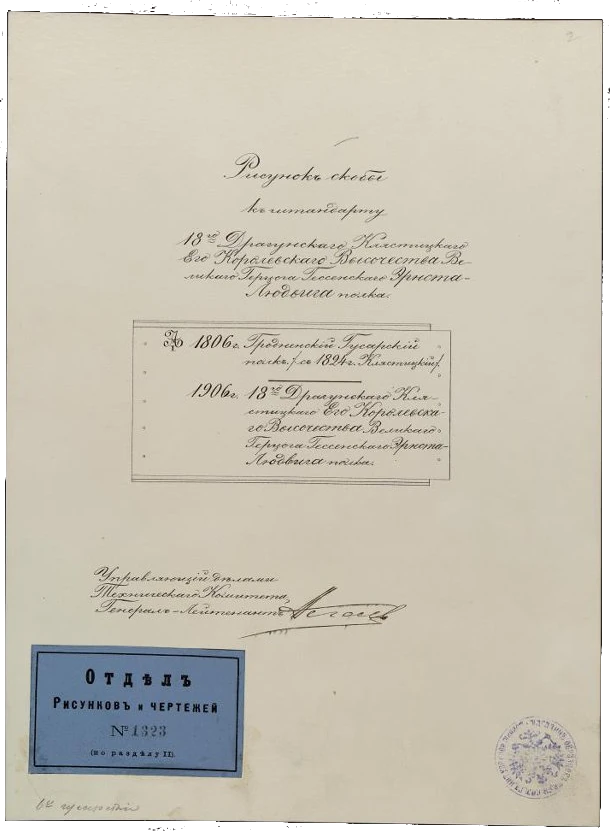 2
Рисунокъ скобы
къ штандарту
18го Драгунскаго Клястицкаго
Его Королевскаго Высочества Ве-
ликаго Герцога Гессенскаго Эрнста-
Людвига полка.
1806 г. Гродненскій Гусарскій
полкъ. /съ 1824 г. Клястицкій/.
1906 г. 18го Драгунскаго Кля-
стицкаго Его Королевска-
го Высочества Великаго
Герцога Гессенскаго Эрнста-
Людвига полка.
Управляющій дѣлами
Техническаго Комитета,
Генералъ-Лейтенантъ
Отдѣлъ
Рисунковъ и чертежей
№ 1323
(по раздѣлу II).